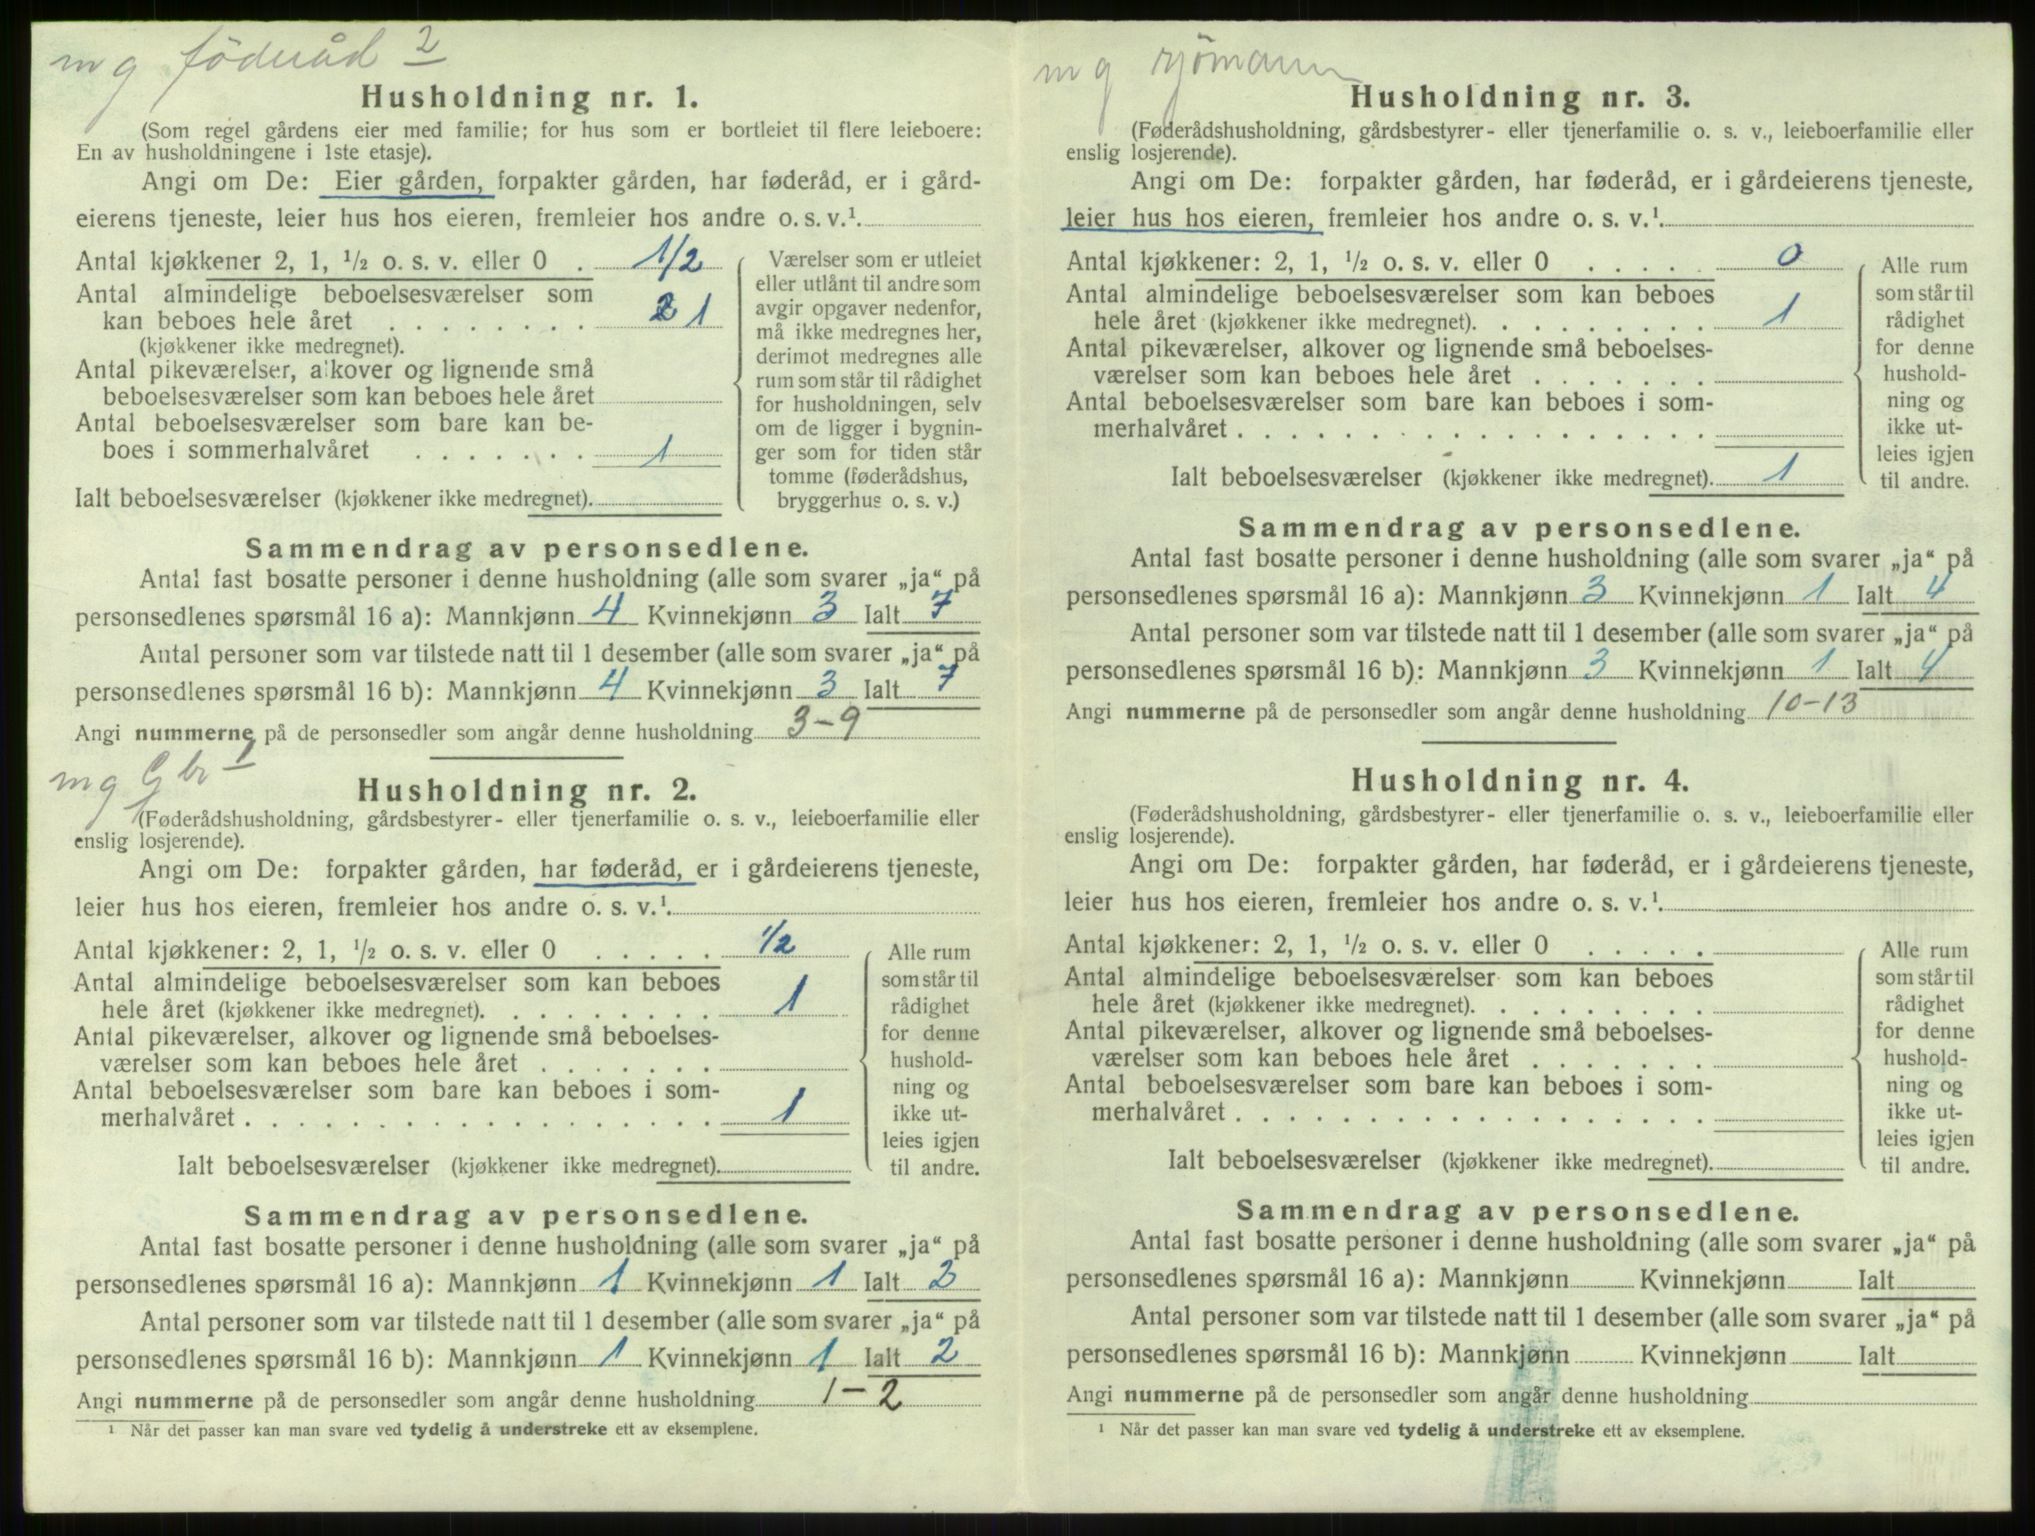 mg føderåd 2
Husholdning nr. 1.
(Som regel gårdens eier med familie; for hus som er bortleiet til flere leieboere:
En av husholdningene i 1ste etasje).
Angi om De: Eier gården, forpakter gården, har føderåd, er i gård-
eierens tjeneste, leier hus hos eieren, fremleier hos andre o. s. v.¹.
Antal kjøkkener 2, 1, ½ o. s. v. eller 0 . 1/2
Antal almindelige beboelsesværelser som
kan beboes hele året . . . . . . . . 2 1
(kjøkkener ikke medregnet).
Antal pikeværelser, alkover og lignende små
beboelsesværelser som kan beboes hele året
Antal beboelsesværelser som bare kan be-
boes i sommerhalvåret . . . . . . . 1
Ialt beboelsesværelser (kjøkkener ikke medregnet).
Værelser som er utleiet
eller utlånt til andre som
avgir opgaver nedenfor,
må ikke medregnes her,
derimot medregnes alle
rum som står til rådighet
for husholdningen, selv
om de ligger i bygnin-
ger som for tiden står
tomme (føderådshus,
bryggerhus o. s. v.)
Sammendrag av personsedlene.
Antal fast bosatte personer i denne husholdning (alle som svarer „ja“ på
personsedlenes spørsmål 16 a): Mannkjønn 4 Kvinnekjønn 3 Ialt 7
Antal personer som var tilstede natt til 1 desember (alle som svarer „ja“ på
personsedlenes spørsmål 16 b): Mannkjønn 4 Kvinnekjønn 3 Ialt 7
Angi nummerne på de personsedler som angår denne husholdning 3-9
mg Gbr 1
Husholdning nr. 2.
(Føderådshusholdning, gårdsbestyrer- eller tjenerfamilie o. s. v., leieboerfamilie eller
enslig losjerende).
Angi om De: forpakter gården, har føderåd, er i gårdeierens tjeneste,
leier hus hos eieren, fremleier hos andre o. s. v.¹.
Antal kjøkkener: 2, 1, ½ o. s. v. eller 0 . . . . . 1/2
Antal almindelige beboelsesværelser som kan beboes
hele året (kjøkkener ikke medregnet). . . . . . . . . 1
Antal pikeværelser, alkover og lignende små beboelses-
værelser som kan beboes hele året . . . . . . .
Antal beboelsesværelser som bare kan beboes i som-
merhalvåret . . . . . . . . . . . . . . . . . . 1
Ialt beboelsesværelser (kjøkkener ikke medregnet).
Alle rum
som står til
rådighet
for denne
hushold-
ning og
ikke ut-
leies igjen
til andre.
Sammendrag av personsedlene.
Antal fast bosatte personer i denne husholdning (alle som svarer „ja“ på
personsedlenes spørsmål 16 a): Mannkjønn 1 Kvinnekjønn 1 Ialt 2
Antal personer som var tilstede natt til 1 desember (alle som svarer „ja“ på
personsedlenes spørsmål 16 b): Mannkjønn 1 Kvinnekjønn 1 Ialt 2
Angi nummerne på de personsedler som angår denne husholdning 1-2
¹ Når det passer kan man svare ved tydelig å understreke ett av eksemplene.
mg sjömann
Husholdning nr. 3.
(Føderådshusholdning, gårdsbestyrer- eller tjenerfamilie o. s. v., leieboerfamilie eller
enslig losjerende).
Angi om De: forpakter gården, har føderåd, er i gårdeierens tjeneste,
leier hus hos eieren, fremleier hos andre o. s. v.¹.
Antal kjøkkener: 2, 1, ½ o. s. v. eller 0 . . . . . 0
Antal almindelige beboelsesværelser som kan beboes
hele året (kjøkkener ikke medregnet). . . . . . . . . 1
Antal pikeværelser, alkover og lignende små beboelses-
værelser som kan beboes hele året . . . . . . .
Antal beboelsesværelser som bare kan beboes i som-
merhalvåret . . . . . . . . . . . . . . . . . .
Ialt beboelsesværelser (kjøkkener ikke medregnet). 1
Alle rum
som står til
rådighet
for denne
hushold-
ning og
ikke ut-
leies igjen
til andre.
Sammendrag av personsedlene.
Antal fast bosatte personer i denne husholdning (alle som svarer „ja“ på
personsedlenes spørsmål 16 a): Mannkjønn 3 Kvinnekjønn 1 Ialt 4
Antal personer som var tilstede natt til 1 desember (alle som svarer „ja“ på
personsedlenes spørsmål 16 b): Mannkjønn 3 Kvinnekjønn 1 Ialt 4
Angi nummerne på de personsedler som angår denne husholdning 10-13
Husholdning nr. 4.
(Føderådshusholdning, gårdsbestyrer- eller tjenerfamilie o. s. v., leieboerfamilie eller
enslig losjerende).
Angi om De: forpakter gården, har føderåd, er i gårdeierens tjeneste,
leier hus hos eieren, fremleier hos andre o. s. v.¹.
Antal kjøkkener: 2, 1, ½ o. s. v. eller 0 . . . . .
Antal almindelige beboelsesværelser som kan beboes
hele året (kjøkkener ikke medregnet). . . . . . . . .
Antal pikeværelser, alkover og lignende små beboelses-
værelser som kan beboes hele året . . . . . . .
Antal beboelsesværelser som bare kan beboes i som-
merhalvåret . . . . . . . . . . . . . . . . . .
Ialt beboelsesværelser (kjøkkener ikke medregnet).
Alle rum
som står til
rådighet
for denne
hushold-
ning og
ikke ut-
leies igjen
til andre.
Sammendrag av personsedlene.
Antal fast bosatte personer i denne husholdning (alle som svarer „ja“ på
personsedlenes spørsmål 16 a): Mannkjønn Kvinnekjønn Ialt
Antal personer som var tilstede natt til 1 desember (alle som svarer „ja“ på
personsedlenes spørsmål 16 b): Mannkjønn Kvinnekjønn Ialt
Angi nummerne på de personsedler som angår denne husholdning
¹ Når det passer kan man svare ved tydelig å understreke ett av eksemplene.